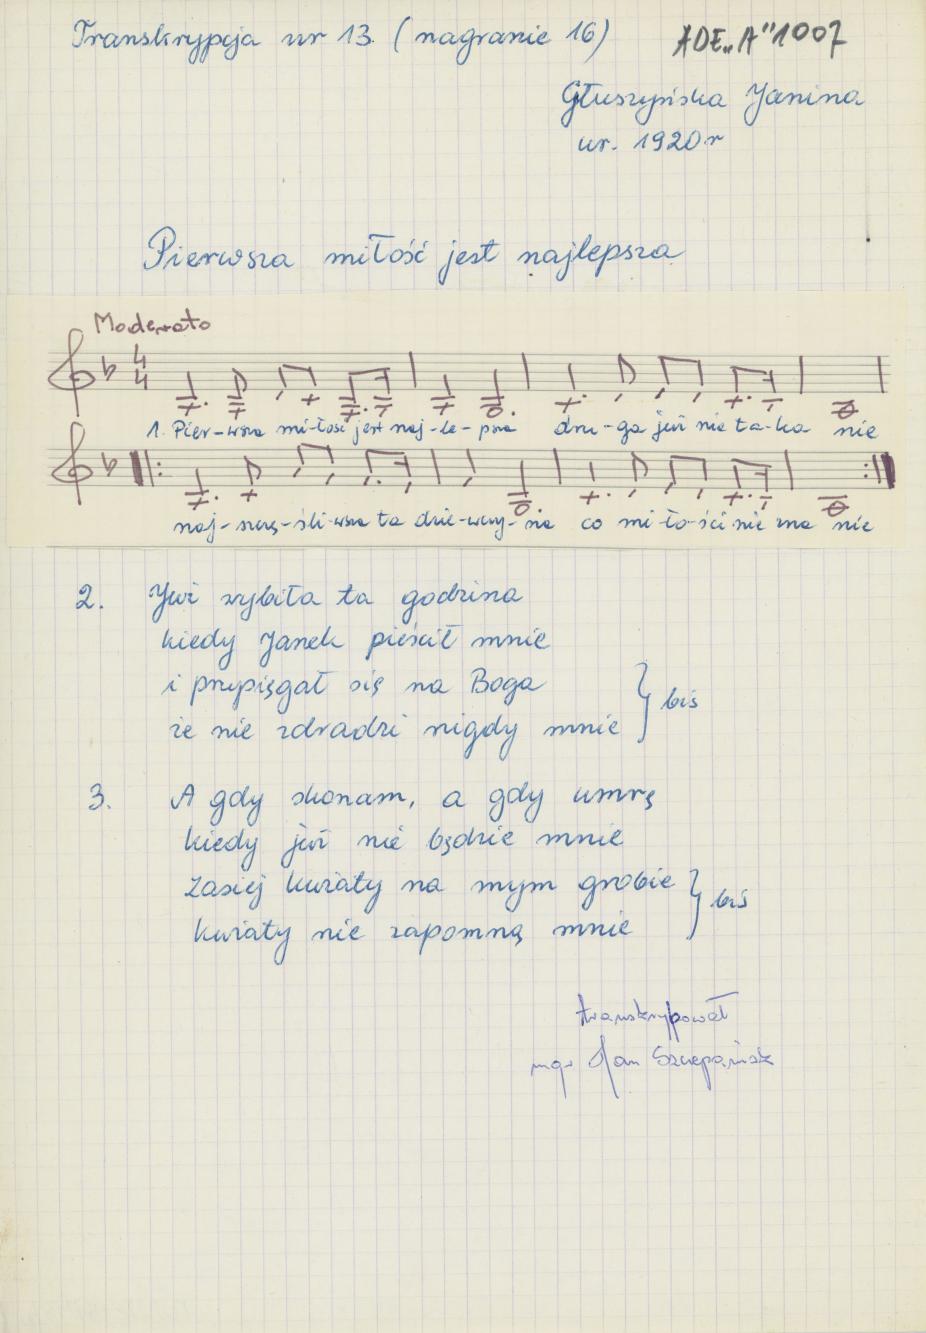 Transkrypcja nr 13. (nagranie 16)
ADE„A"1007
Głuszyńska Janina
ur. 1920 r
Pierwsza miłość jest najlepsza
Moderato
4
4
1. Pier-wsza mi-łość jest naj-le-psza dru-ga już nie ta-ka nie
naj-szczę-śli-wsza ta dzie-wczy-na co mi-ło-ści nie zna nie
2. Już wybiła ta godzina
kiedy Janek pieścił mnie
i przysięgał się na Boga
że nie zdradzi nigdy mnie } bis
3. A gdy skonam, a gdy umrę
kiedy już nie będzie mnie
zasiej kwiaty na mym grobie
kwiaty nie zapomną mnie } bis
transkrypował
mgr Jan Szczepański